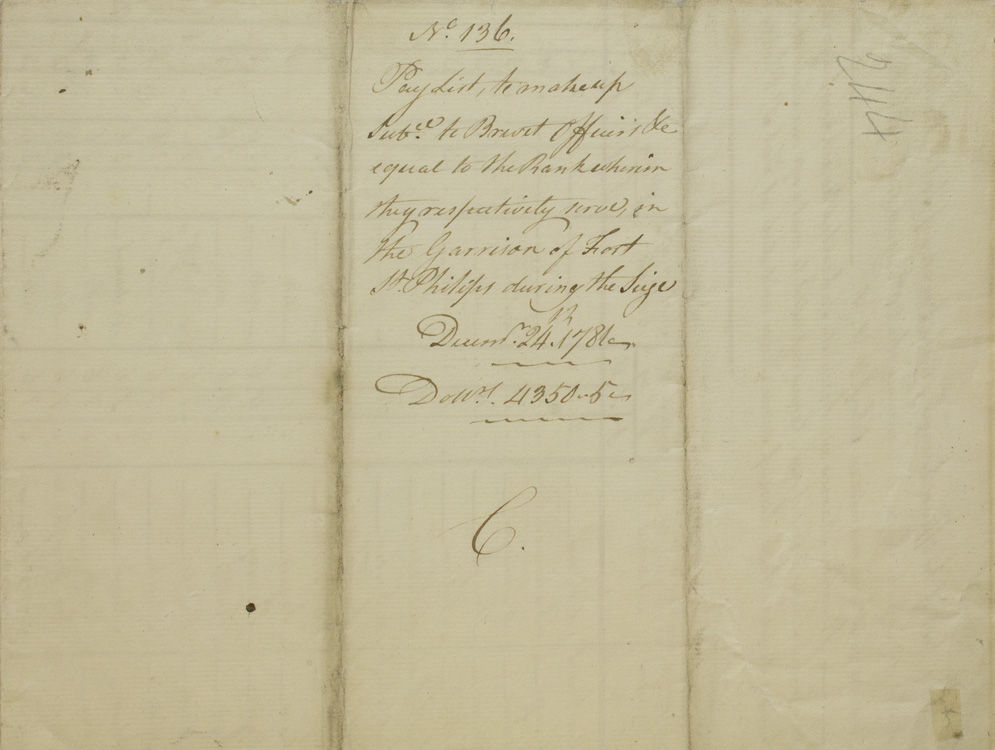 No. 136.
Pay List, to make up
Subce. to Brevet Officers &c
equal to the Rank wherein
they respectively serve, in
the Garrison of Fort
St. Philips during the Siege
Decemr. 24th. 1781
Dollrs. 4350..5
C.